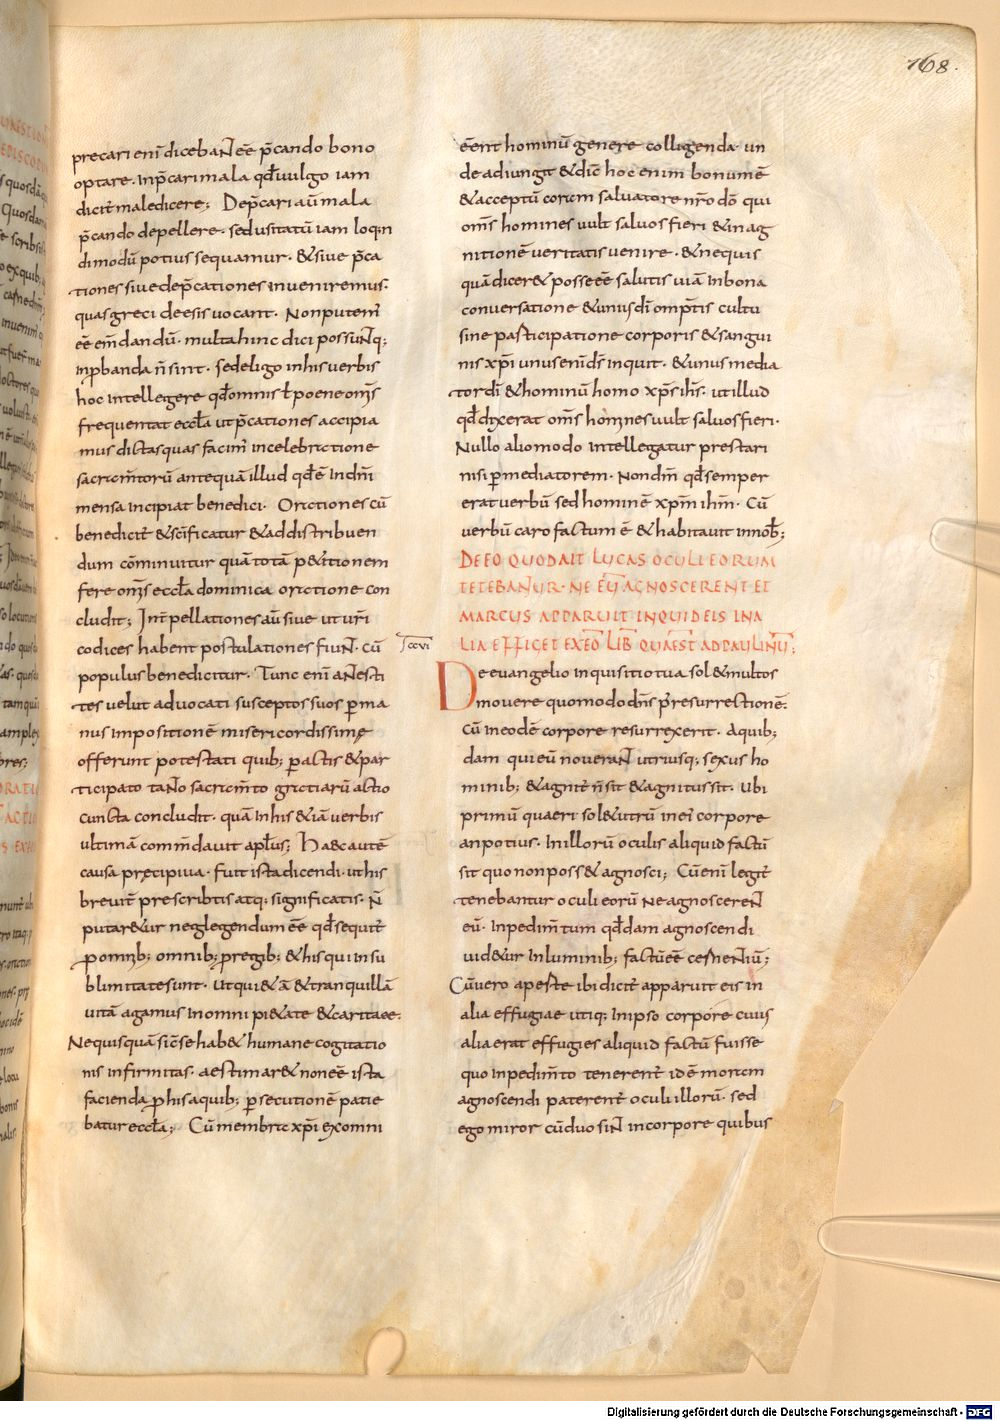 168.
precari eni᷈ dicebaNt eē p̄cando bono
optare. Inp̄cari mala qđ uulgo iam
dicit̄ maledicere; Dep̄cari aū mala
p̄cando depellere. sed usitatū iam loq;n
di modū potius sequamur. & siue p̄ca
tiones siue dep̄cationes inueniremus.
quas greci deesis uocant. Non putem̄
eē em̄dandū. multa hinc dici possuNt q;
inp̄banda n̄ sint. sed eligo in his uerbis
hoc intellegere qđ omnis ł poene om̄s
frequentat eccła ut p̄cationes accipia
mus dictas quas facim̄ in celebratione
sacram̄torū antequā illud qđ ē In dn̄i
mensa incipiat benedici. Orationes cū
benedicit̄ & sc̄ificatur & ad distribuen
dum com̄inuitur quā totā p&itionem
fere om̄s eccła dominica oratione con
cludit; Int̄pellationes aū siue ut ur̄i
codices habent postulationes fiuNt. cū
populus benedicitur. Tunc eni᷈ aNtesti
tes uelut aduocati susceptos suos p̄ ma
nus impositionē misericordissimę
offerunt potestati quib; p̄actis & par
ticipato taNto sacram̄to gratiarū actio
cuncta concludit. quā in his &iā uerbis
ultimā com̄dauit apłus; Haec autē
causa pręcipiua. fuit ista dicendi. ut his
breuit̄ prescribtis atq; significatis. n̄
putar&ur neglegendum eē qđ sequit̄
p̄ omnib; omnib; p̄ regib; & his qui in su
blimitate sunt. Ut qui&ā & tranquillā
uitā agamus in omni pi&ate & caritate.
Ne quisquā sic̄ se hab& humane cogitatio
nis infirmitas. aestimar& non eē ista
facienda p̄ his a quib; p̄secutionē patie
batur eccła; Cū membra xp̄i ex omni
eēnt hominū genere colligenda. un
de adiungit & dic̄ hoc enim bonum ē
& acceptū coram saluatore nr̄o dō qui
om̄s homines uult saluos fieri & in ag
nitionē ueritatis uenire. & nequis
quā dicer& posse eē salutis uiā in bona
conuersatione & unius dī om̄ptis cultu
sine participatione corporis & sangui
nis xp̄i unus eni᷈ ds̄ inquit. & unus media
tor dī & hominū homo xp̄s ih̄s. ut illud
qđ dixerat om̄s homines uult saluos fieri.
Nullo alio modo intellegatur prestari
nisi p̄ mediatorem. Non dm̄ qđ semper
erat uerbū sed hominē xp̄m ih̄m. Cū
uerbū caro factum ē & habitauit in nob̄;
DE EO QUOD AIT LUCAS OCULI EORUM
TETEBANTUR. NE EŪ AGNOSCERENT ET
MARCUS APPARUIT INQUID EIS IN A
LIA EFFIGIE T EX EO LIB̄ QUAEST̄ AD PAULINŪ;
ccvi
De euangelio inquisitio tua sol& multos
mouere quomodo dn̄s p̄ resurrectionē.
cū in eodē corpore resurrexerit. A quib;
dam qui eū noueraNt utriusq; sexus ho
minib; & agnit̄ n̄ sit & agnitus sit. Ubi
primū quaeri sol& utrū in ei᷈ corpore
an potius. In illorū oculis aliquid factū
sit quo non poss& agnosci; Cū eni᷈ legit̄
tenebantur oculi eorū ne agnoscereNt
eū. Inpedim̄tum qđdam agnoscendi
uid&ur in luminib; factū eē cerneNtiū;
Cū uero apeste ibi dicit̄ apparuit eis in
alia effugiae utiq; in ipso corpore cuius
alia erat effugies aliquid factū fuisse
quo inpedim̄to tenerent̄ id ē moram
agnoscendi paterent̄ oculi illorū. sed
ego miror cū duo siNt in corpore quibus
Digitalisierung gefördert durch die Deutsche Forschungsgemeinschaft - DFG